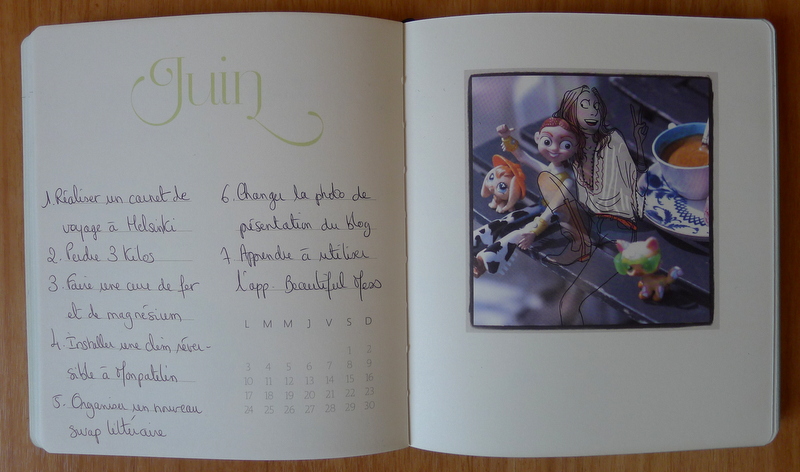 Juin
1. Réaliser un carnet de
voyage à Helsinki
2. Perdre 3 kilos
3. Faire une cure de fer
et de magnésium
4. Installer une clim réver-
sible à Monpatelin
5. Organiser un nouveau
swap littéraire
6. Changer la photo de
présentation du blog
7. Apprendre à utiliser
l'app. Beautiful Mess
L M M J V S D
1 2
3 4 5 6 7 8 9
10 11 12 13 14 15 16
17 18 19 20 21 22 23
24 25 26 27 28 29 30